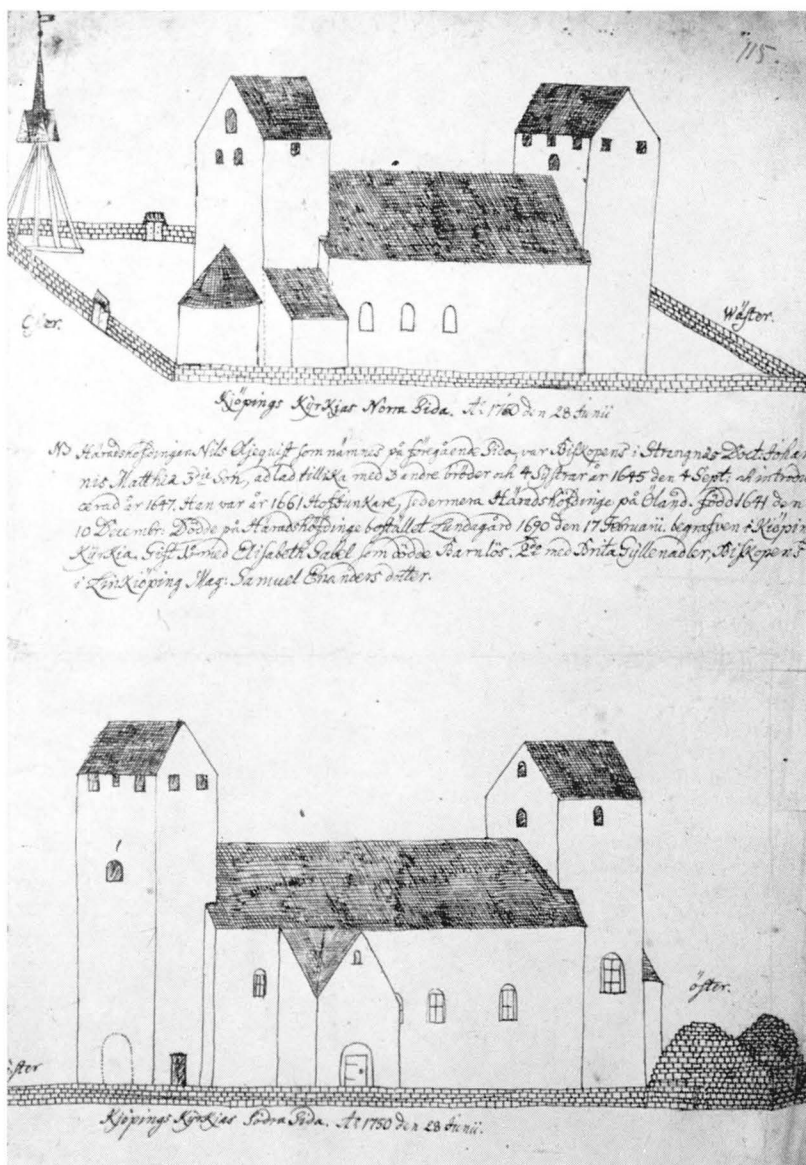 115.
Öster.
Wäster.
Kjöpings Kyrkias Norra Sida. Aº 1760 den 28 Junii
Häradshöfdingen Nils som nämnes på föregående Sida, var Biskopens i Strengnäs Doct. Johan-
nis Matthiæ 3die Son, adlad tillika med 3 andre bröder och 4 Systrar år 1645 den 4 Sept. och introdu-
cerad år 1647. Han var år 1661 Hofjunkare, sedermera Häradshöfdinge på Öland. född 1641 den
10 Decembr. Dödde på Häradshöfdinge bostället Lundegård 1690 den 17 Februarii. begrafven i Kiöpin
Kyrkia. Gift med Elisabeth Gabel som dödde Barnlös. 2do med Brita Gyllenadler, Biskopens
i Linkiöping Mag. Samuel Enanders dotter.
öster.
äster
Kjöpings Kyrkias Södra Sida. Aº 1750 den 28 Junii.